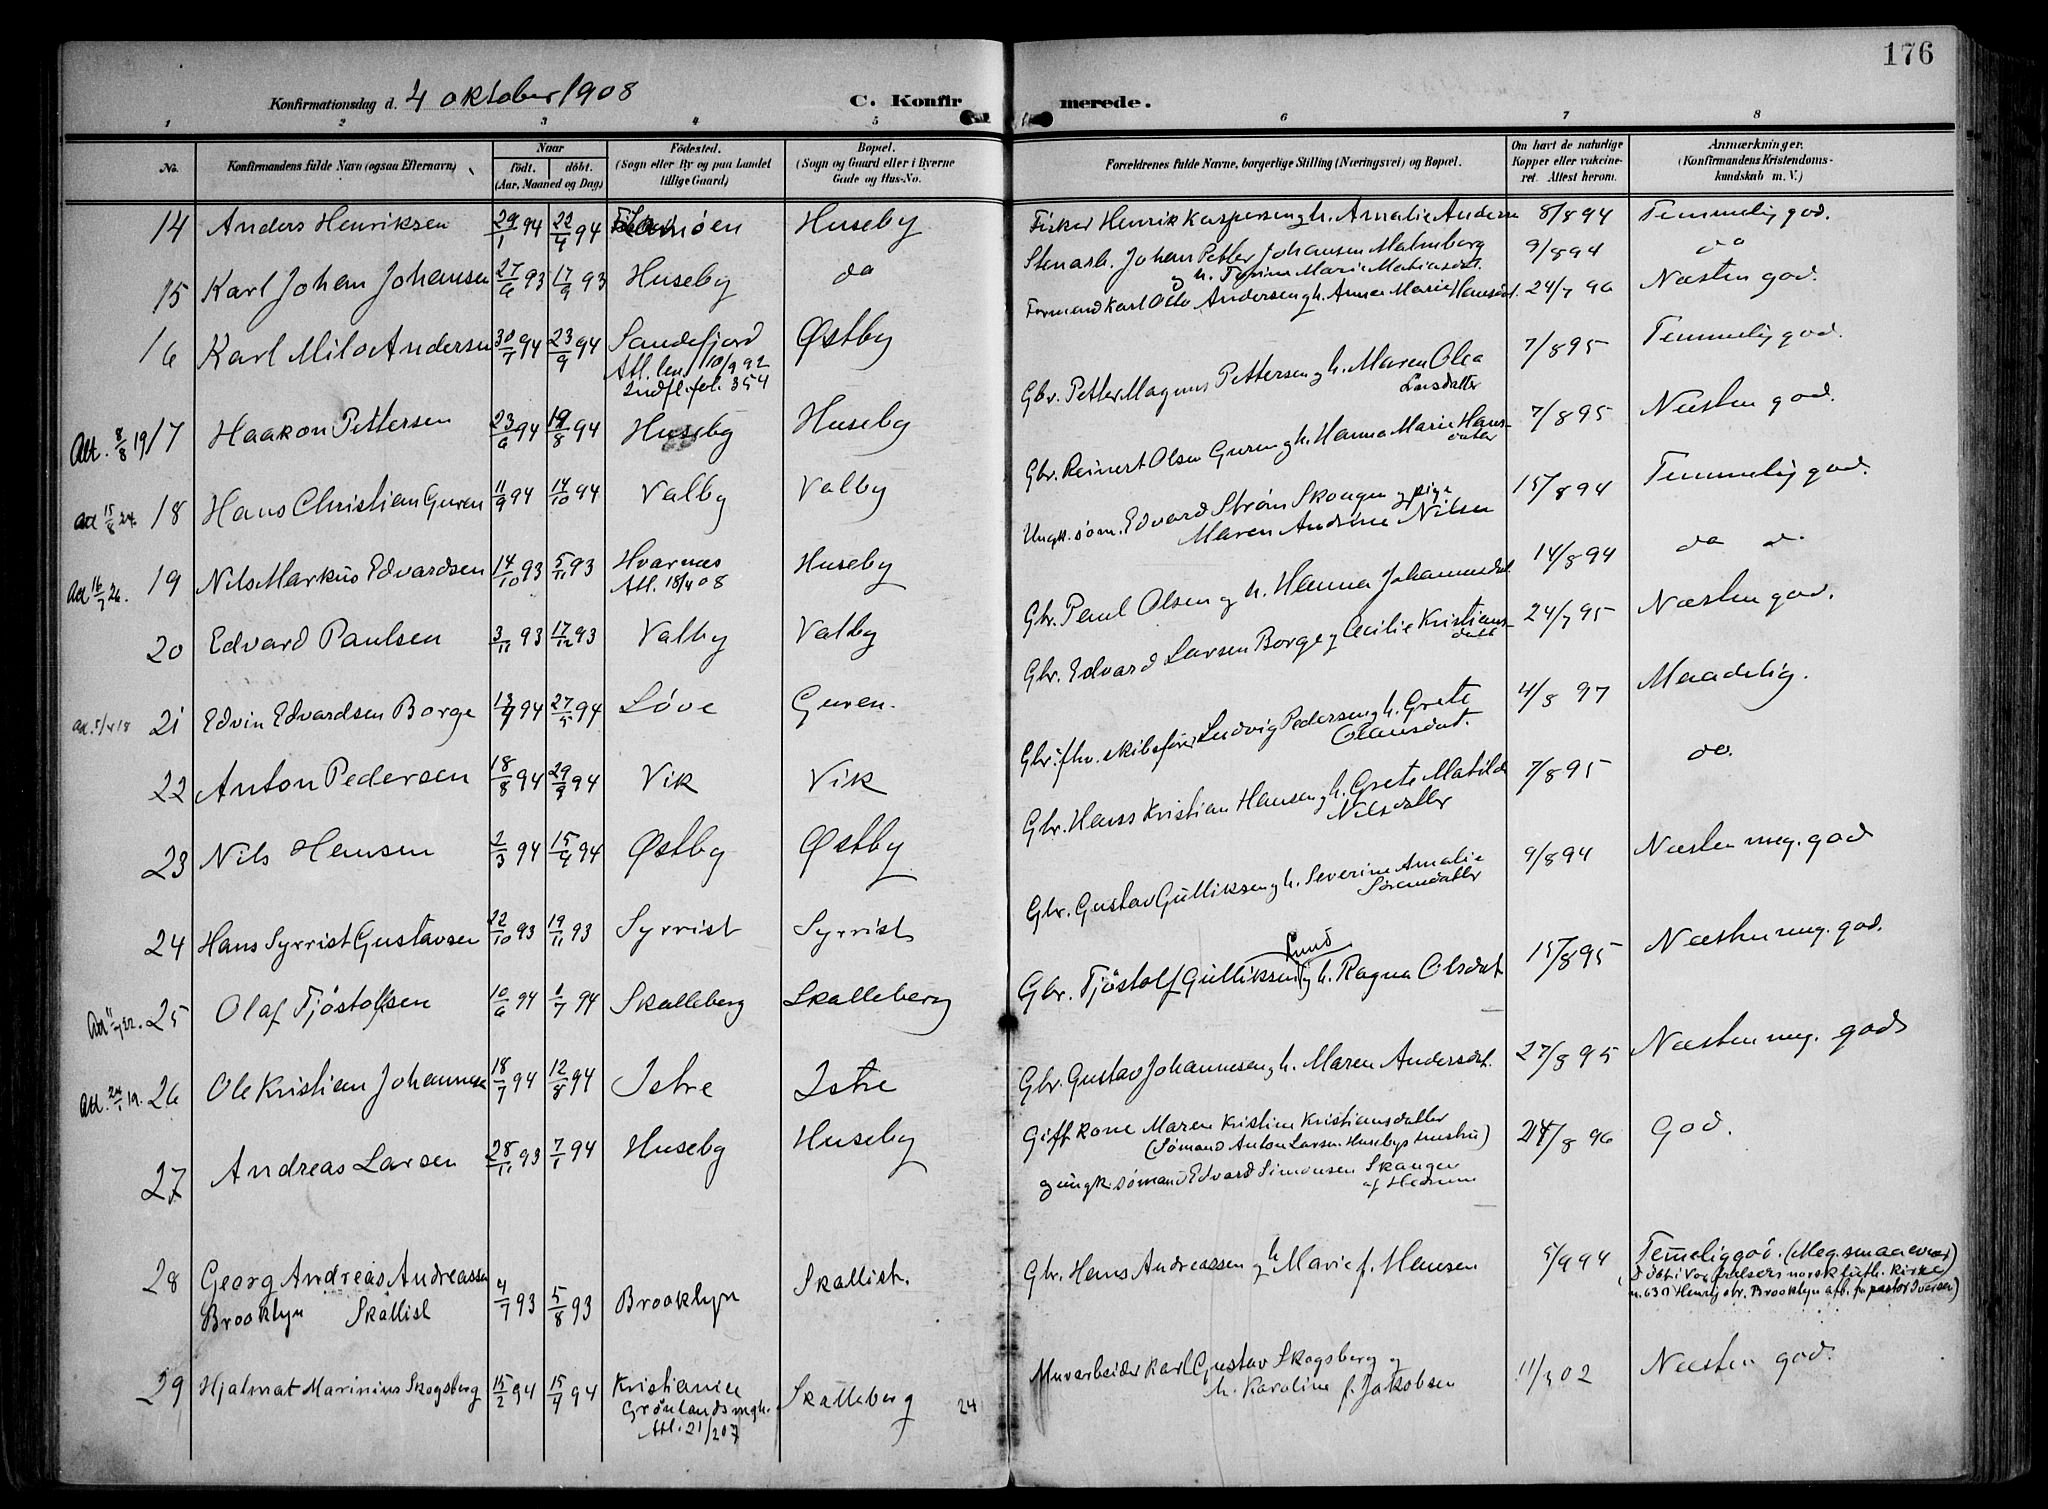 176
Konfirmationsdag d. 4 oktober 1908
C. Konfirmerede.
1 2 3 4 5 6 7 8
No. Konfirmandens fulde Navn (ogsaa Efternavn) Naar født. døbt. (Aar, Maaned og Dag) Fødested. (Sogn eller By og paa Landet tillige Gaard) Bopæl. (Sogn og Gaard eller i Byerne Gade og Hus-No. Forældrenes fulde Navne, borgerlige Stilling (Næringsvei) og Bopæl. Om havt de naturlige Kopper eller vakcineret. Attest herom. Anmærkninger. (Konfirmandens Kristendomskundskab m. V.)
14 Anders Henriksen 29/1 94 22/4 94 Huseby Fisker Henrik Kaspersen og h. Amalie Anders 8/8 94 Temmelig god.
15 Karl Johan Johansen 27/6 93 17/9 93 Huseby do Stenarb. Johan Petter Johansen Malmborg
og h. Marie Matiasdt. 9/8 94 do
16 Karl Milo Andersen 30/7 94 23/9 94 Sandefjord Østby Formand Karl Otto Andersen og h. Anna Marie Hansdt. 24/7 96 Næsten god.
Att. 10/9 92
Indfl. fol. 354
Att. 8/8 19 17 Haakon Pettersen 23/6 94 19/8 94 Huseby Huseby Gbr. Petter Magnus Pettersen og h. Maren Olea
Larsdatter 7/8 95 Temmelig god.
Att 15/8 24. 18 Hans Christian Guren 11/9 94 14/10 94 Valby Valby Gbr. Reinert Olsen Guren og h. Hanna Marie Hansdatter 7/8 95 Næsten god.
Att 16/7 26. 19 Nils Markus Edvardsen 14/10 93 5/11 93 Hvarnes Huseby Ungk. søm. Edvard Strøm Skougen og pige.
Maren Andrine Nilsen 15/8 94 Temmelig god.
Att. 18/4 08
20 Edvard Paulsen 3/11 93 17/12 93 Valby Valby Gbr. Paul Olsen og h. Hanna Johannesdat. 14/8 94 do do.
At. 5/4 18 21 Edvin Edvardsen Borge 13/4 94 27/5 94 Løve Guren. Gbr. Edvard Larsen Borge og Cecilie Kristiansdatt 24/7 95 Næsten god.
22 Anton Pedersen 18/8 94 29/9 94 Vik Vik Gbr. fhv. skibsfører Ludvig Pedersen og h. Grete
Clausdat. 4/8 97 Maadelig.
23 Nils Hansen 2/3 94 15/4 94 Østby Østby Gbr. Hans Kristian Hansen og h. Grete Matilde
Nilsdatter 7/8 95 do.
24 Hans Syrrist Gustavsen 22/10 93 19/11 93 Syrrist Syrrist Gbr. Gustav Gulliksen og h. Severine Amalie
Sørensdatter 9/8 94 Næsten meg. god
25 Olaf Tjøstolfsen 10/6 94 1/7 94 Skalleberg Skalleberg Gbr. Tjøstolf Gulliksen Lund og h. Ragna Olsdat. 15/8 95 Næsten meg. god.
Att. 24/1 19. 26 Ole Kristian Johannesen 18/7 94 12/8 94 Istre Istre Gbr. Gustav Johannesen og h. Maren Andersdat. 27/8 95 Næsten meg. god
27 Andreas Larsen 28/11 93 7/1 94 Huseby Huseby Gift kone Maren Kristine Kristiansdatter
(Sømand Anton Larsen Husebys hustru)
og ungk. sømand Edvard Simonsen Skaugen
af Hedrum 24/8 96 God.
28 Georg Andreas Andreassen
Brooklyn Skallist 4/7 93 5/8 93 Brooklyn Skallist. Gbr. Hans Andreassen og h Marie f. Hansen 5/9 94 Temeliggod. (Meg. smaa evner)
(Døbt i Vor frelsers norsk luth. kirke
n. 630 Henry str. Brooklyn afb. fra pastor Iversen)
29 Hjalmat Marinius Skogsberg 15/2 94 15/4 94 Kristiania
Grønlands mgh.
Att. 21/2 07 Skalleberg 24 Murarbeider Karl Gustav Skogsberg og
h. Karoline f. Jakobsen 11/3 02 Næsten god.